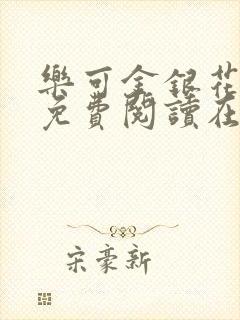 樂可金銀花
免費閱讀在
宋豪新